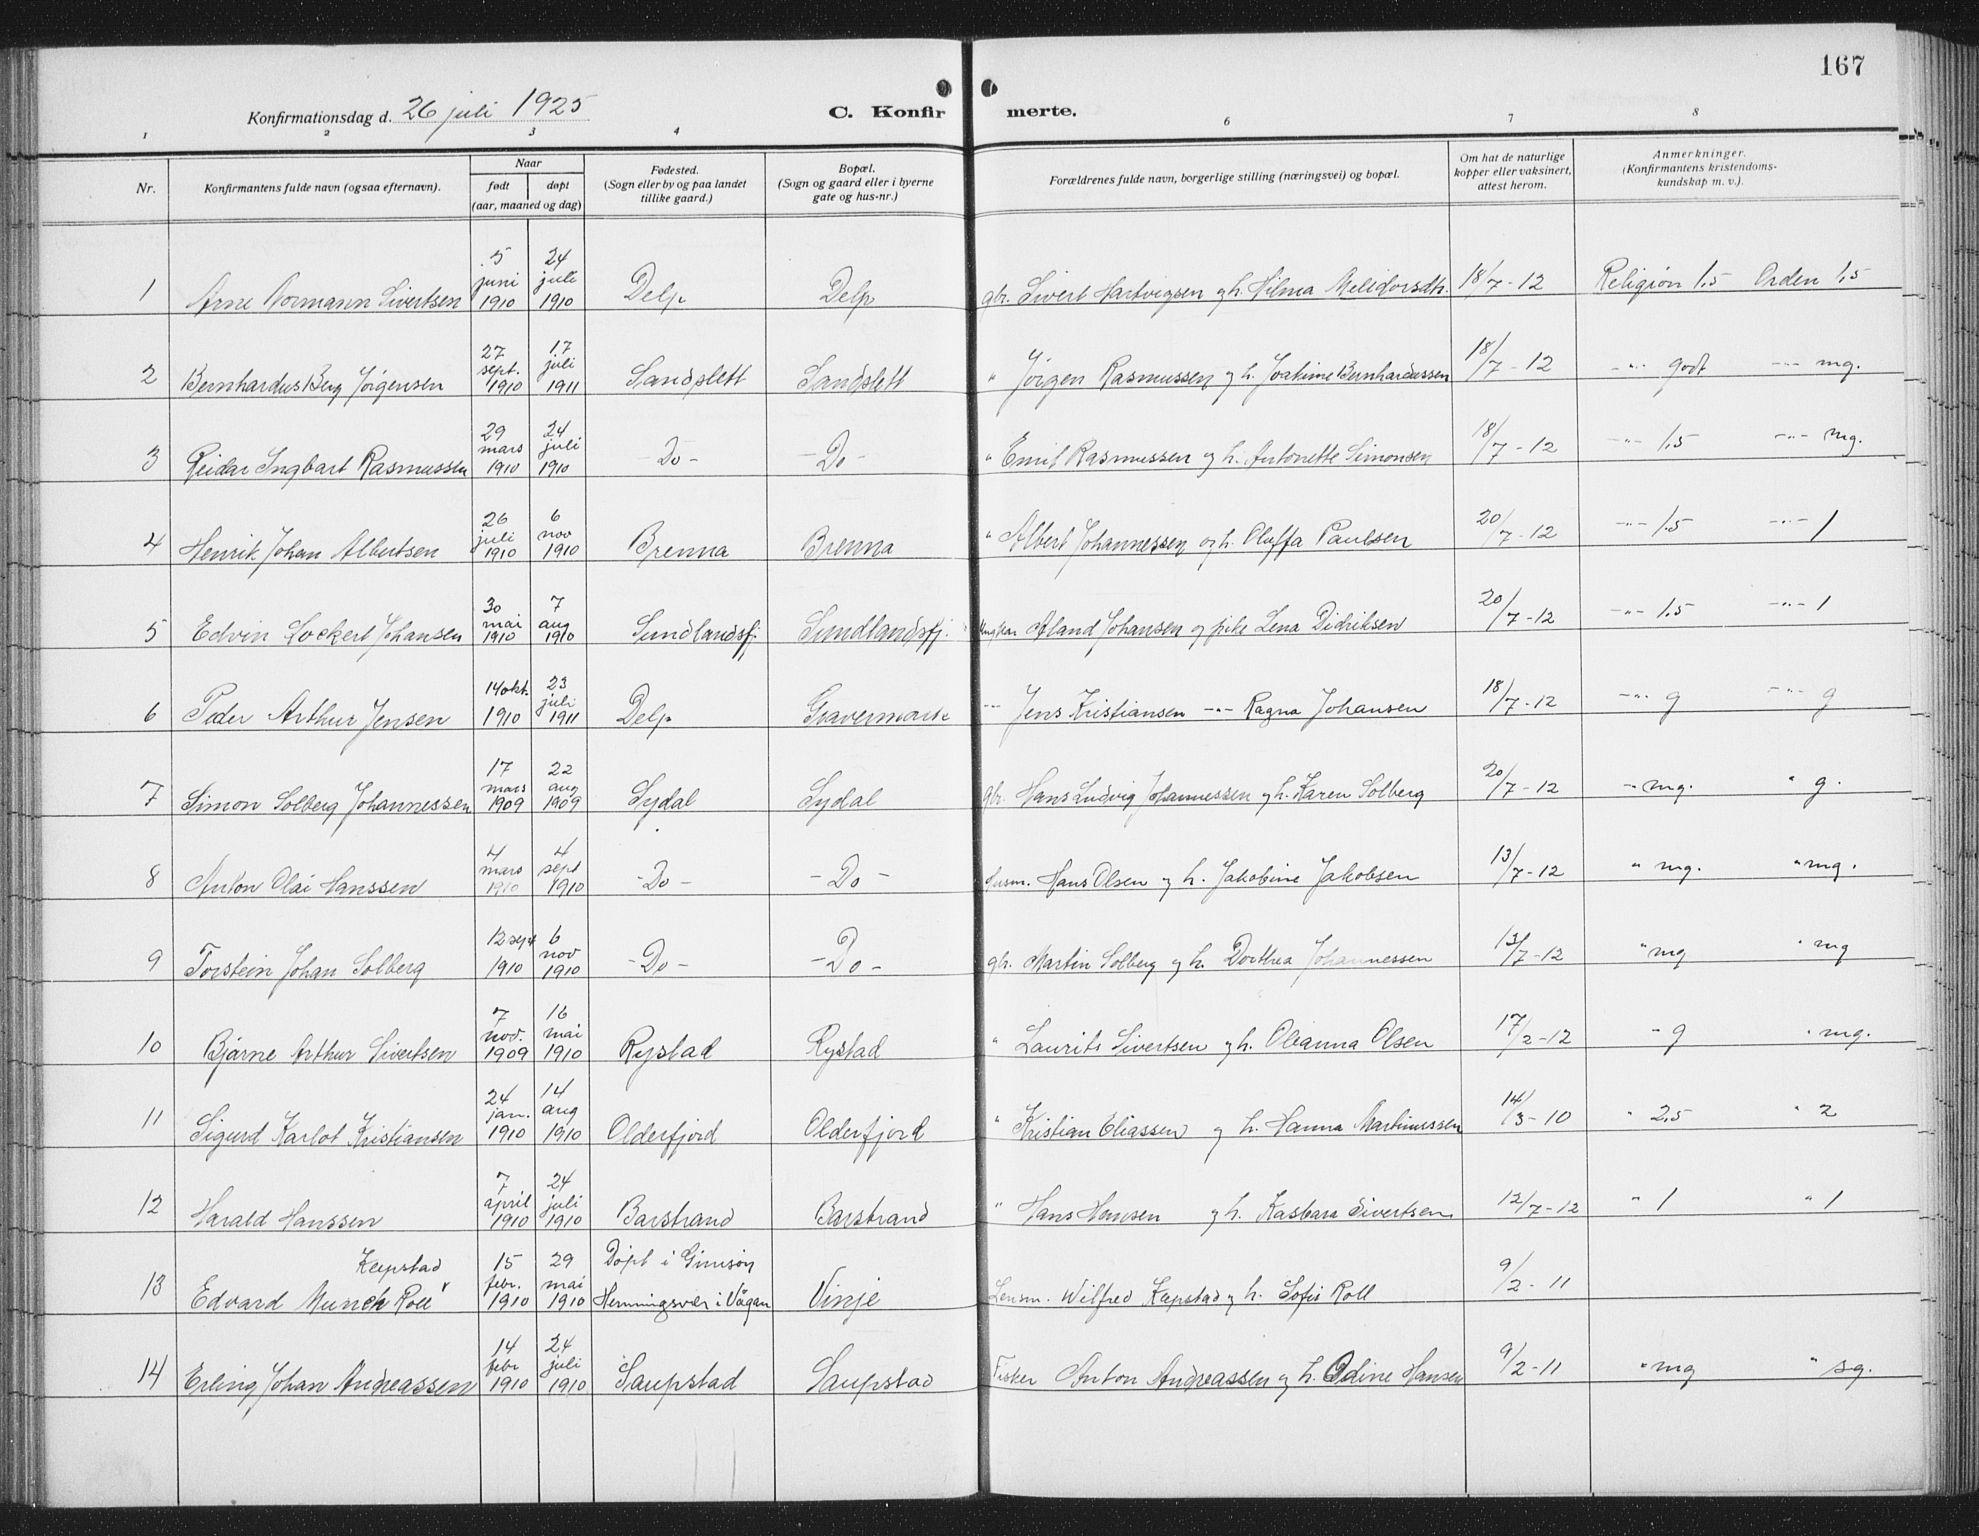 167
Konfirmationsdag d. 26 juli 1925 C. Konfirmerte.
1 2 3 4 6 7 8
Nr. Konfirmantens fulde navn (ogsaa efternavn). Naar født døpt (aar, maaned og dag) Fødested. (Sogn eller by og paa landet tillike gaard.) Bopæl. (Sogn og gaard eller i byerne gate og hus-nr.) Forældrenes fulde navn, borgerlige stilling (næringsvei) og bopæl. Om hat de naturlige kopper eller vaksinert, attest herom. Anmerkninger. (Konfirmantens kristendomskundskap m. v.).
1 Arne Normann Sivertsen 5 juni 1910 24 juli 1910 Delp Delp gbr. Sivert Hartvigsen og h. Hilma Melidorsdtr. 18/7-12 Religion 1,5 Orden 1,5
2 Bernhardus Berg Jørgensen 27 sept. 1910 17 juli 1911 Sandslett Sandslett " Jørgen Rasmussen og h. Joakime Bernhardussen 18/7-12 -"- godt -"- mg.
3 Reidar Ingbart Rasmussen 29 mars 1910 24 juli 1910 -Do- -Do- " Emil Rasmussen og h. Antonette Simonsen 18/7-12 -"- 1,5 -"- mg.
4 Henrik Johan Albertsen 26 juli 1910 6 nov 1910 Brenna Brenna " Albert Johannessen og h. Oluffa Paulsen 20/7-12 -"- 1,5 -"- 1
5 Edvin Lockert Johansen 30 mai 1910 7 aug 1910 Sundlandsfj. Sundlandsfj. Ungkar Aland Johansen og pike Lena Didriksen 20/7-12 -"- 1,5 -"- 1
6 Peder Arthur Jensen 14 okt. 1910 23 juli 1911 Delp -"- Jens Kristiansen -"- Ragna Johansen 18/7-12 -"- g -"- g
7 Simon Solberg Johannessen 17 mars 1909 22 aug 1909 Sydal Sydal gbr. Hans Ludvig Johannessen og h. Karen Solberg 20/7-12 -"- mg. " g.
8 Anton Olai Hanssen 4 mars 1910 4 sept 1910 -Do- -Do- Husm. Hans Olsen og h. Jakobine Jakobsen 13/7-12 " mg. " mg.
9 Torstein Johan Solberg 12 sept 1910 6 nov 1910 -Do- -Do- gbr. Martin Solberg og h. Dorthea Johannessen 13/7-12 " mg " mg
10 Bjarne Arthur Sivertsen 7 nov. 1909 16 mai 1910 Rystad Rystad " Laurits Sivertsen og h. Oleanna Olsen 17/2-12 " g " mg.
11 Sigurd Karlot Kristiansen 24 jan. 1910 14 aug 1910 Olderfjord Olderfjord " Kristian Eliassen og h. Hanna Martinussen 14/3-10 " 2,5 " 2
12 Harald Hanssen 7 april 1910 24 juli 1910 Barstrand Barstrand " Hans Hansen og h. Kasbara Sivertsen 12/7-12 " 1 " 1
13 Edvard Munch Roll Kepstad 15 febr. 1910 29 mai 1910 Døpt i Gimsøy Henningsvær i Vågan Vinje Lensm. Wilfred Kepstad og h. Sofie Roll 9/2-11
14 Erling Johan Andreassen 14 febr 1910 24 juli 1910 Saupstad Saupstad Fisker Anton Andreassen og h. Odine Hansen 9/2-11 " mg " sg.